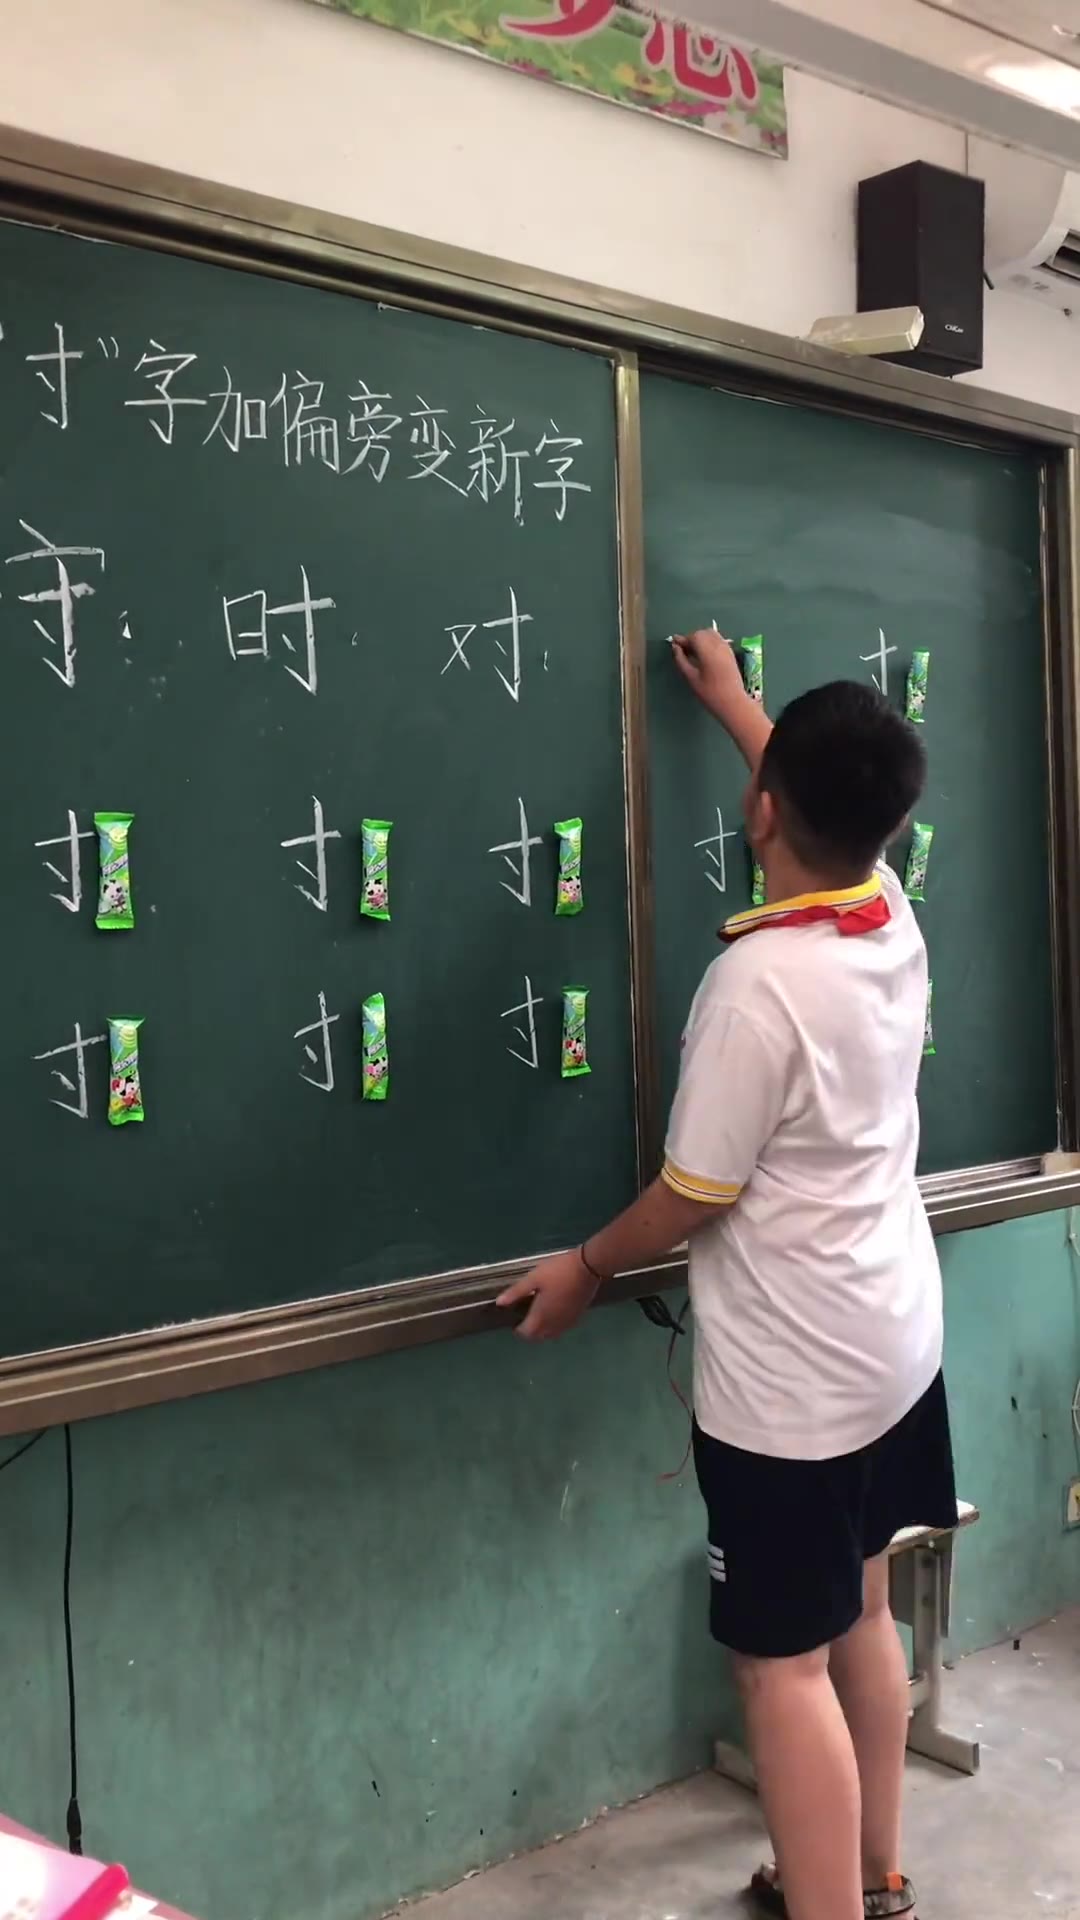 梦 悠
"寸"字加偏旁变新字
守 时 对 寸
寸 寸 寸 寸
寸 寸 寸